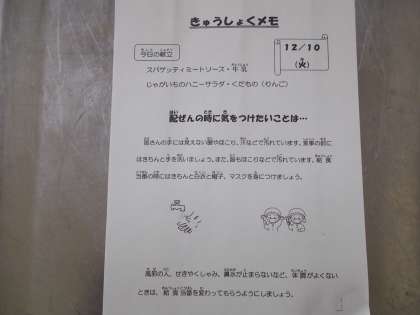 きゅうしょくメモ
12/10
(火)
今日の献立
スパゲッティミートソース・牛乳
じゃがいものハニーサラダ・くだもの（りんご）
配ぜんの時に気をつけたいことは…
皆さんの手には見えない菌やほこり、汗などで汚れています。食事の前に
はきちんと手を洗いましょう。また、服もほこりなどで汚れています。給食
当番の時にはきちんと白衣と帽子、マスクを身につけましょう。
風邪の人、せきやくしゃみ、鼻水が止まらないなど、体調がよくない
ときは、給食当番を変わってもらうようにしましょう。